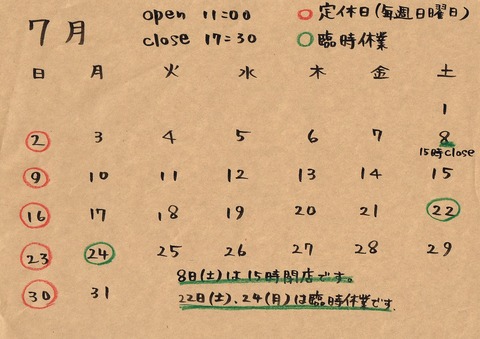 7月
open 11:00
close 17:30
定休日(毎週日曜日)
臨時休業
日 月 火 水 木 金 土
1
2 3 4 5 6 7 8
15時close
9 10 11 12 13 14 15
16 17 18 19 20 21 22
23 24 25 26 27 28 29
30 31
8日(土)は15時閉店です。
22日(土)、24(月)は臨時休業です.